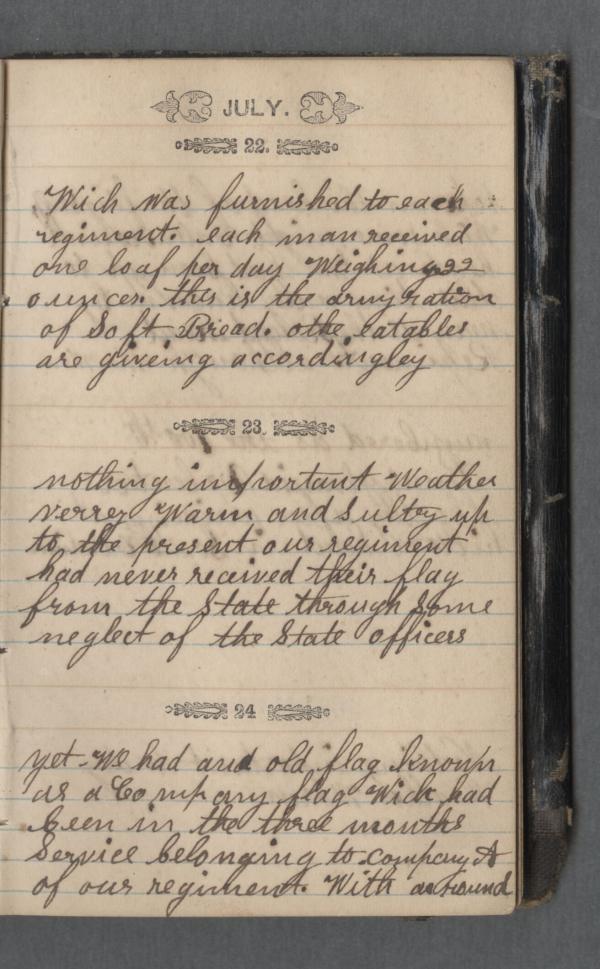 JULY.
22.
Wich was furnished to each
regiment. each man received
one loaf per day Weighing 22
ounces. this is the army ration
of Soft Bread. othe eatables
are giveing accordingley
23.
nothing important Weather
verrey Warm and Sultry up
to the present our regiment
had never received their flag
from the State through Some
neglect of the State officers
24
yet We had and old flag known
as a Company flag Wich had
been in the three months
Service belonging to company A
of our regiment. With